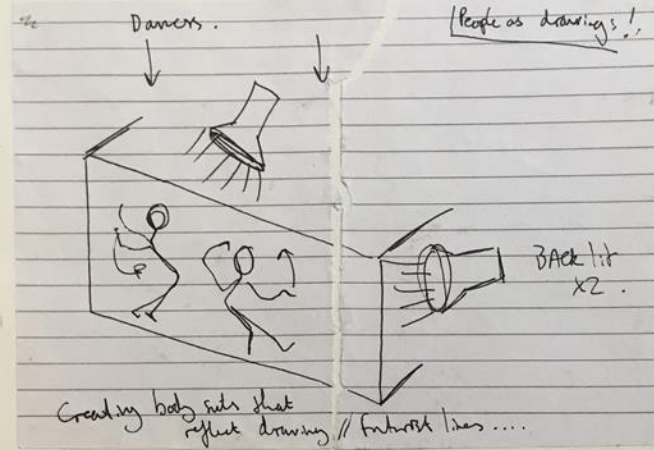 Dancers.
People as drawings!!
BAck lit
x2.
Creating body suits that
reflect drawing // futurist lines....